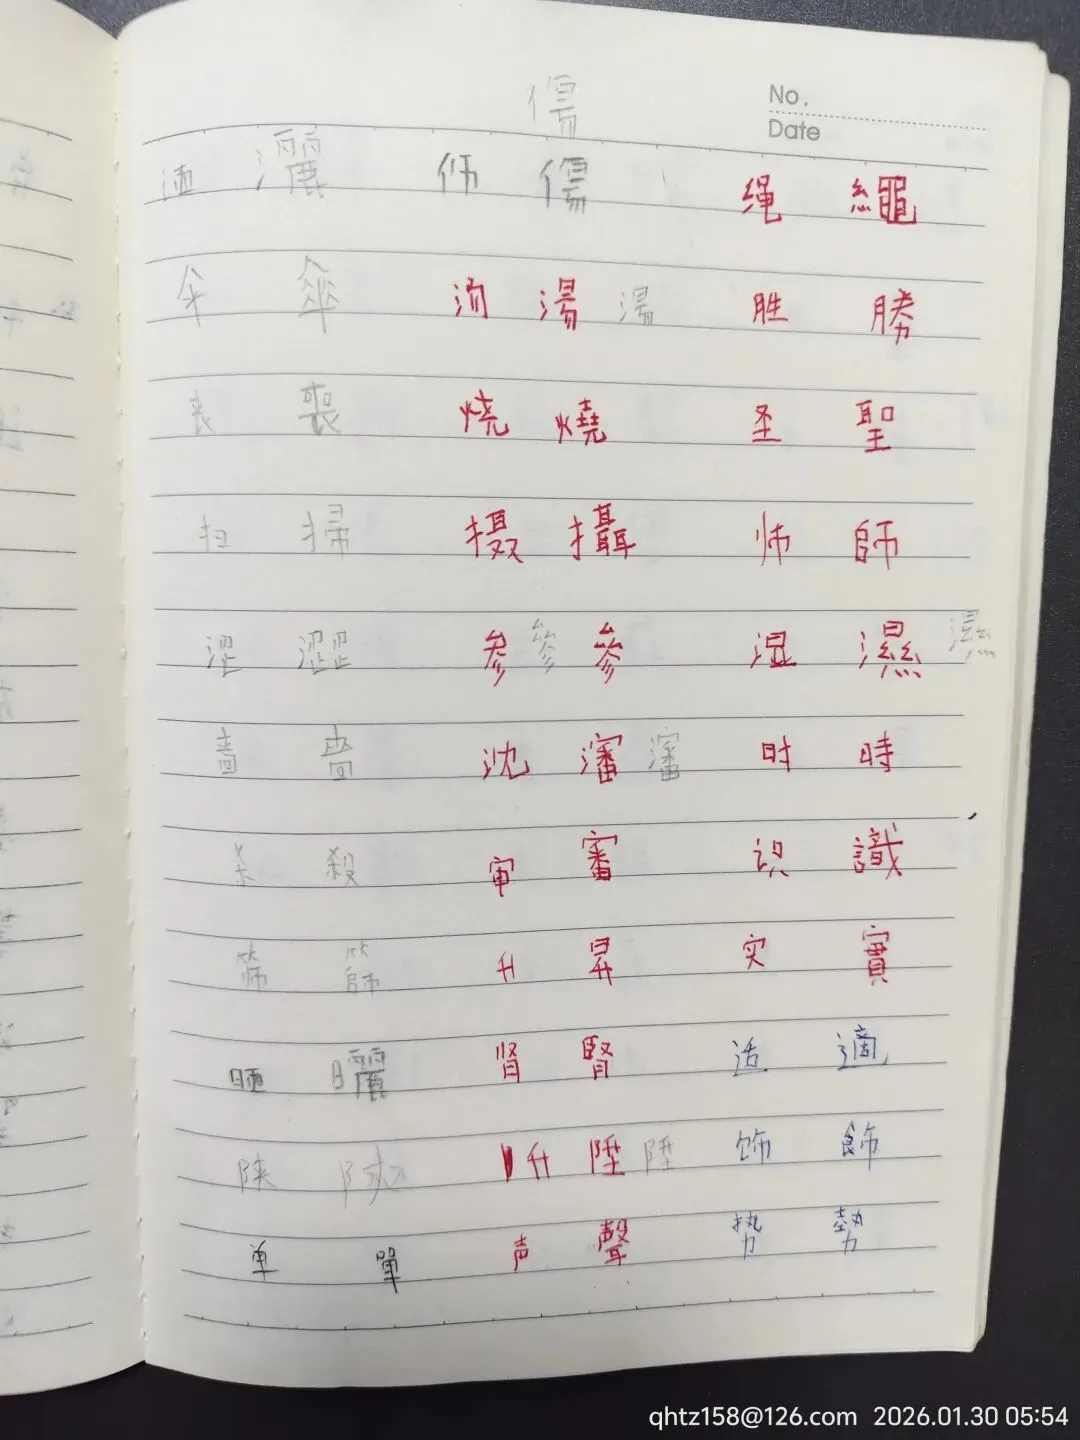 傷
No.
Date
洒 灑 伤 傷 绳 繩
伞 傘 汤 湯 湯 胜 勝
丧 喪 烧 燒 圣 聖
扫 掃 摄 攝 师 師
涩 澀 参 參 參 湿 濕 濕
啬 嗇 沈 瀋 瀋 时 時
杀 殺 审 審 识 識
筛 篩 升 昇 实 實
晒 曬 肾 腎 适 適
陕 陝 升 陞 陞 饰 飾
单 單 声 聲 势 勢
qhtz158@126.com 2026.01.30 05:54